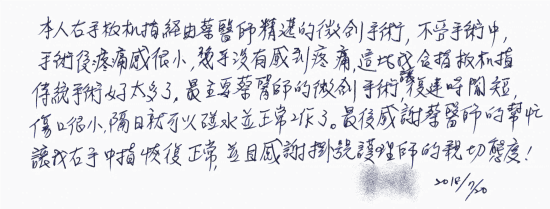 本人右手扳机指經由蔡醫師精湛的微創手術，不管手術中，
手術後疼痛感很小，幾乎沒有感到疼痛，這比我食指扳机指
傳統手術好太多了。最主要蔡醫師的微創手術，讓復建時間短，
傷口很小，隔日就可以碰水並正常工作了。最後感謝蔡醫師的幫忙
讓我右手中指恢復正常，並且感謝掛號護理師的親切態度！
2018/7/20